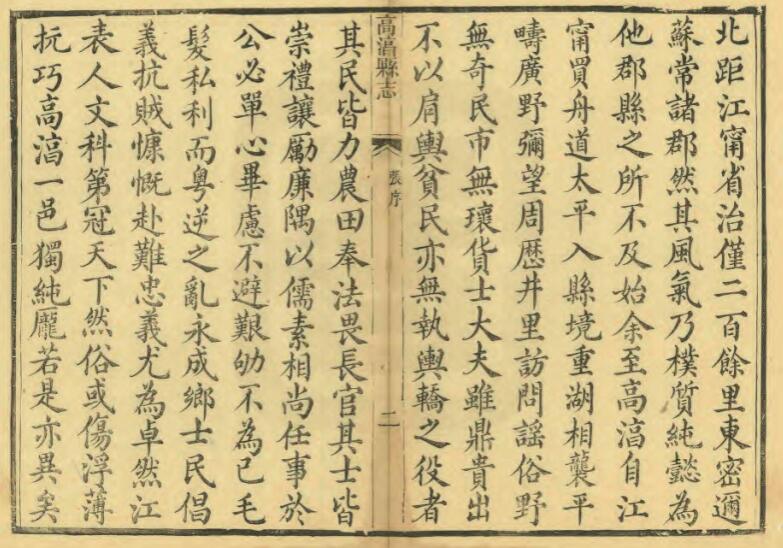 北距江甯省治僅二百餘里東密邇
蘇常諸郡然其風氣乃樸質純懿為
他郡縣之所不及始余至高淳自江
甯買舟道太平入縣境重湖相襲平
疇廣野彌望周歷井里訪問謡俗野
無奇民市無瓌貨士大夫雖鼎貴出
不以肩輿貧民亦無執輿轎之役者
高淳縣志
張序
二
其民皆力農田奉法畏長官其士皆
崇禮讓勵廉隅以儒素相尚任事於
公必單心畢慮不避艱劬不為己毛
髮私利而粤逆之亂永成鄉士民倡
義抗賊慷慨赴難忠義尤為卓然江
表人文科第冠天下然俗或傷浮薄
抏巧高淳一邑獨純龐若是亦異矣